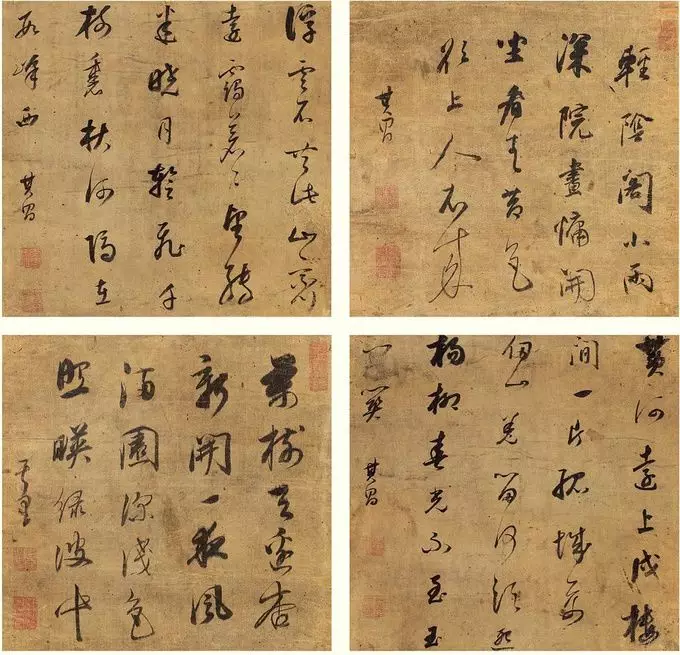 輕陰閣小雨
深院晝慵開
坐看蒼苔色
欲上人衣來
其昌
浮雲不共此山齊
遠靄蒼〻望轉
迷曉月暫飛千
樹裏秋河隔在
數峰西
其昌
黃河遠上戍樓
間一片孤城萬
仞山羌笛何須怨
楊柳春光不至玉
門關
其昌
萬樹江邊杏
新開一夜風
滿園深淺色
照暎綠波中
其昌